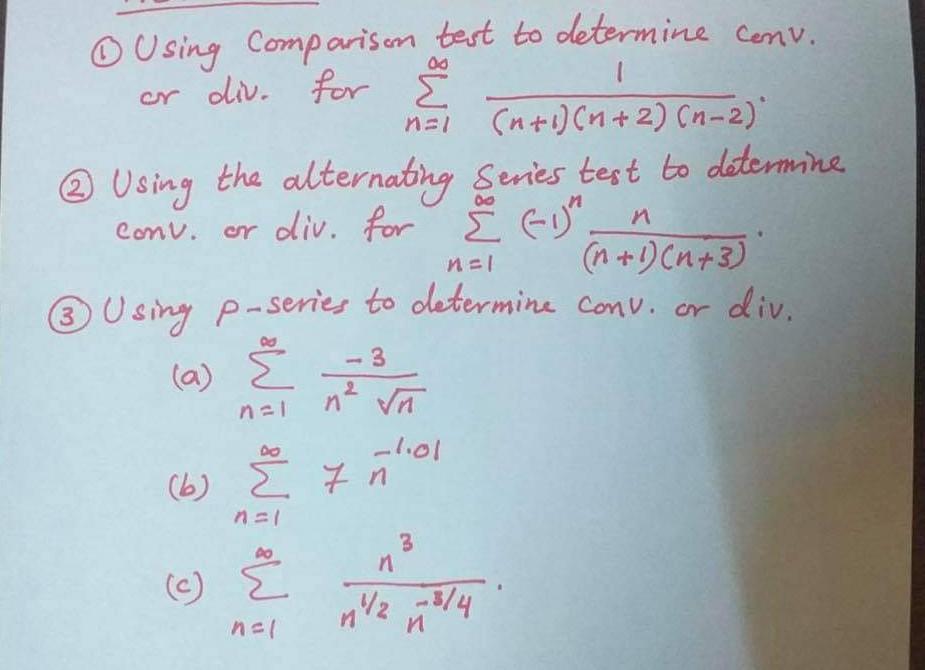 ① Using Comparison test to determine conv.
or div. for ∞Σn=1 1/((n+1)(n+2)(n-2)).
② Using the alternating Series test to determine
conv. or div. for ∞Σn=1 (-1)^n n/((n+1)(n+3)).
③ Using p-series to determine conv. or div.
(a) ∞Σn=1 -3/(n^2 √n)
(b) ∞Σn=1 7 n^-1.01
(c) ∞Σn=1 n^3/(n^1/2 n^-3/4).